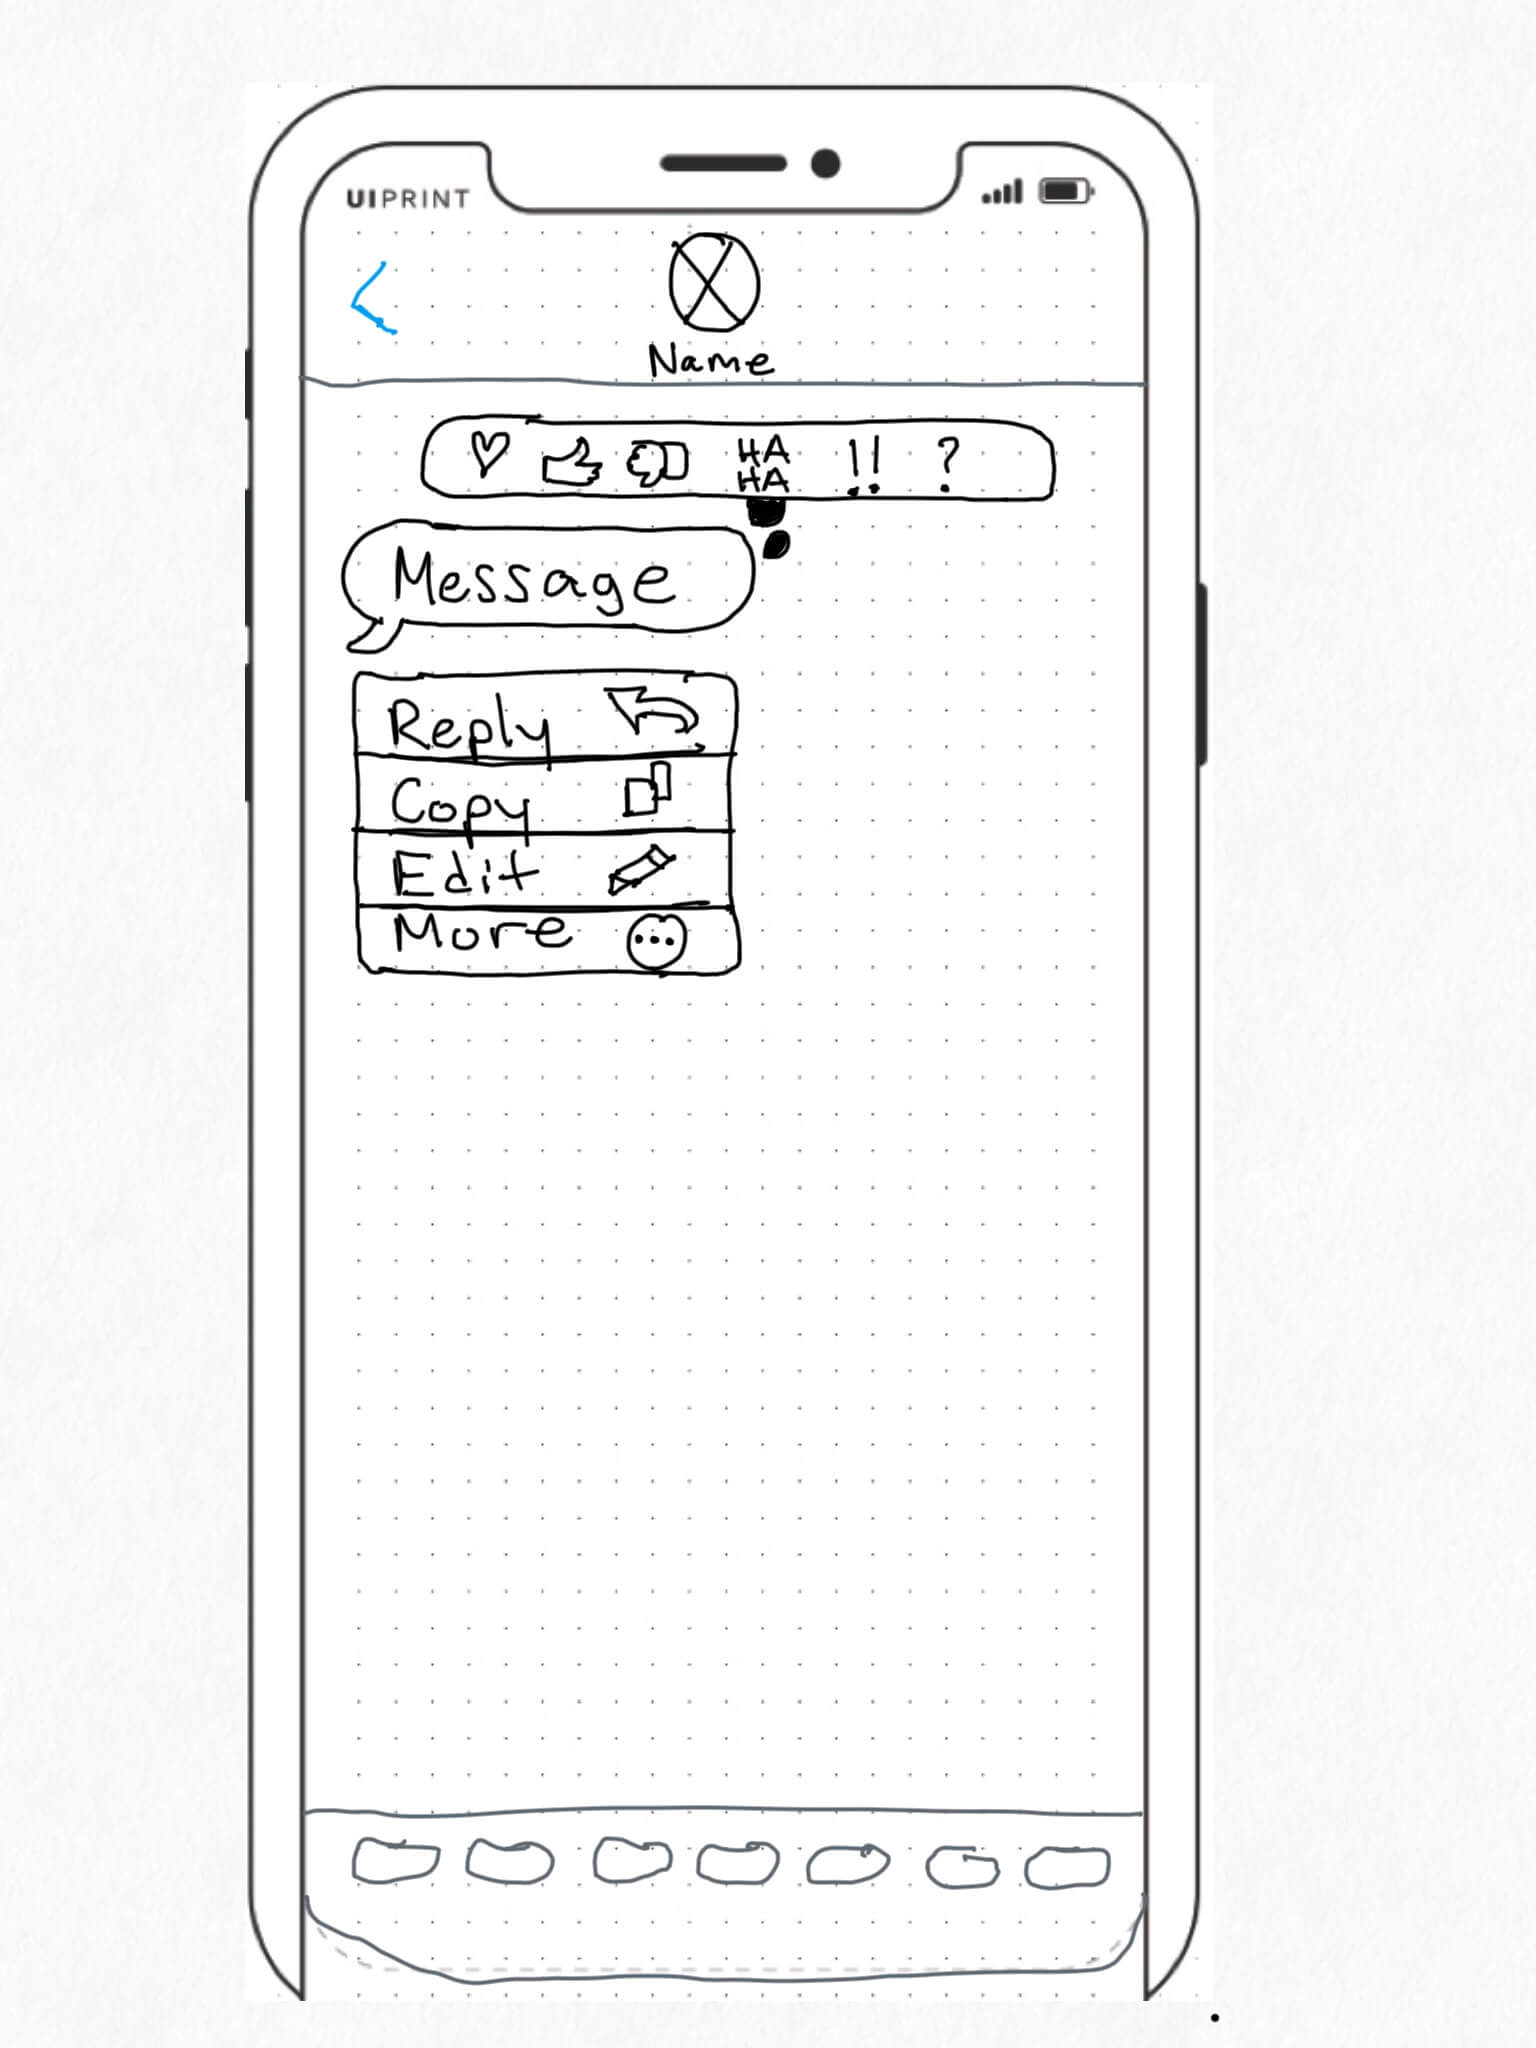 UIPRINT
Name
HA
HA !! ?
Message
Reply
Copy
Edit
More